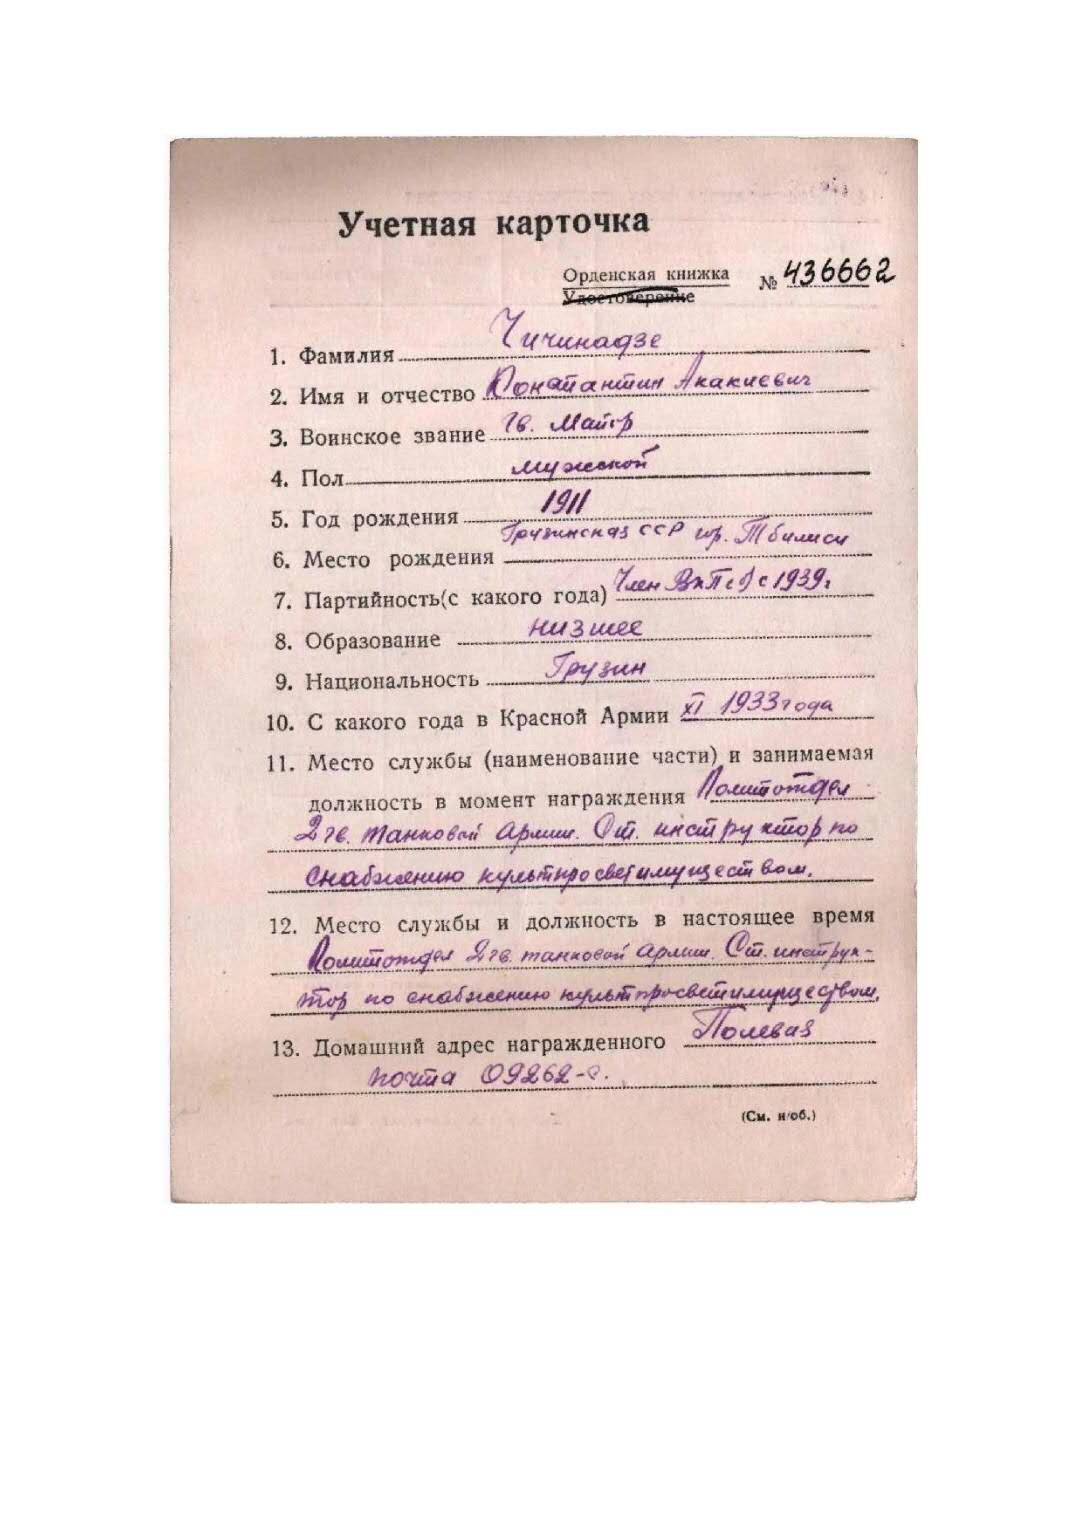 Учетная карточка
Орденская книжка
Удостоверение № 436662
1. Фамилия Чичинадзе
2. Имя и отчество Константин Акакиевич
3. Воинское звание гв. Майор
4. Пол мужской
5. Год рождения 1911
6. Место рождения Грузинская ССР гр. Тбилиси
7. Партийность(с какого года) Член ВКП(б) с 1939г
8. Образование низшее
9. Национальность Грузин
10. С какого года в Красной Армии XI 1933 года
11. Место службы (наименование части) и занимаемая
должность в момент награждения Политотдел
2 гв. танковой Армии. Ст. инструктор по
снабжению культпросветимуществом.
12. Место службы и должность в настоящее время
Политотдел 2 гв. танковой армии. Ст. инструк-
тор по снабжению культпросветимуществом.
13. Домашний адрес награжденного Полевая
почта 09262-с.
(См. н/об.)